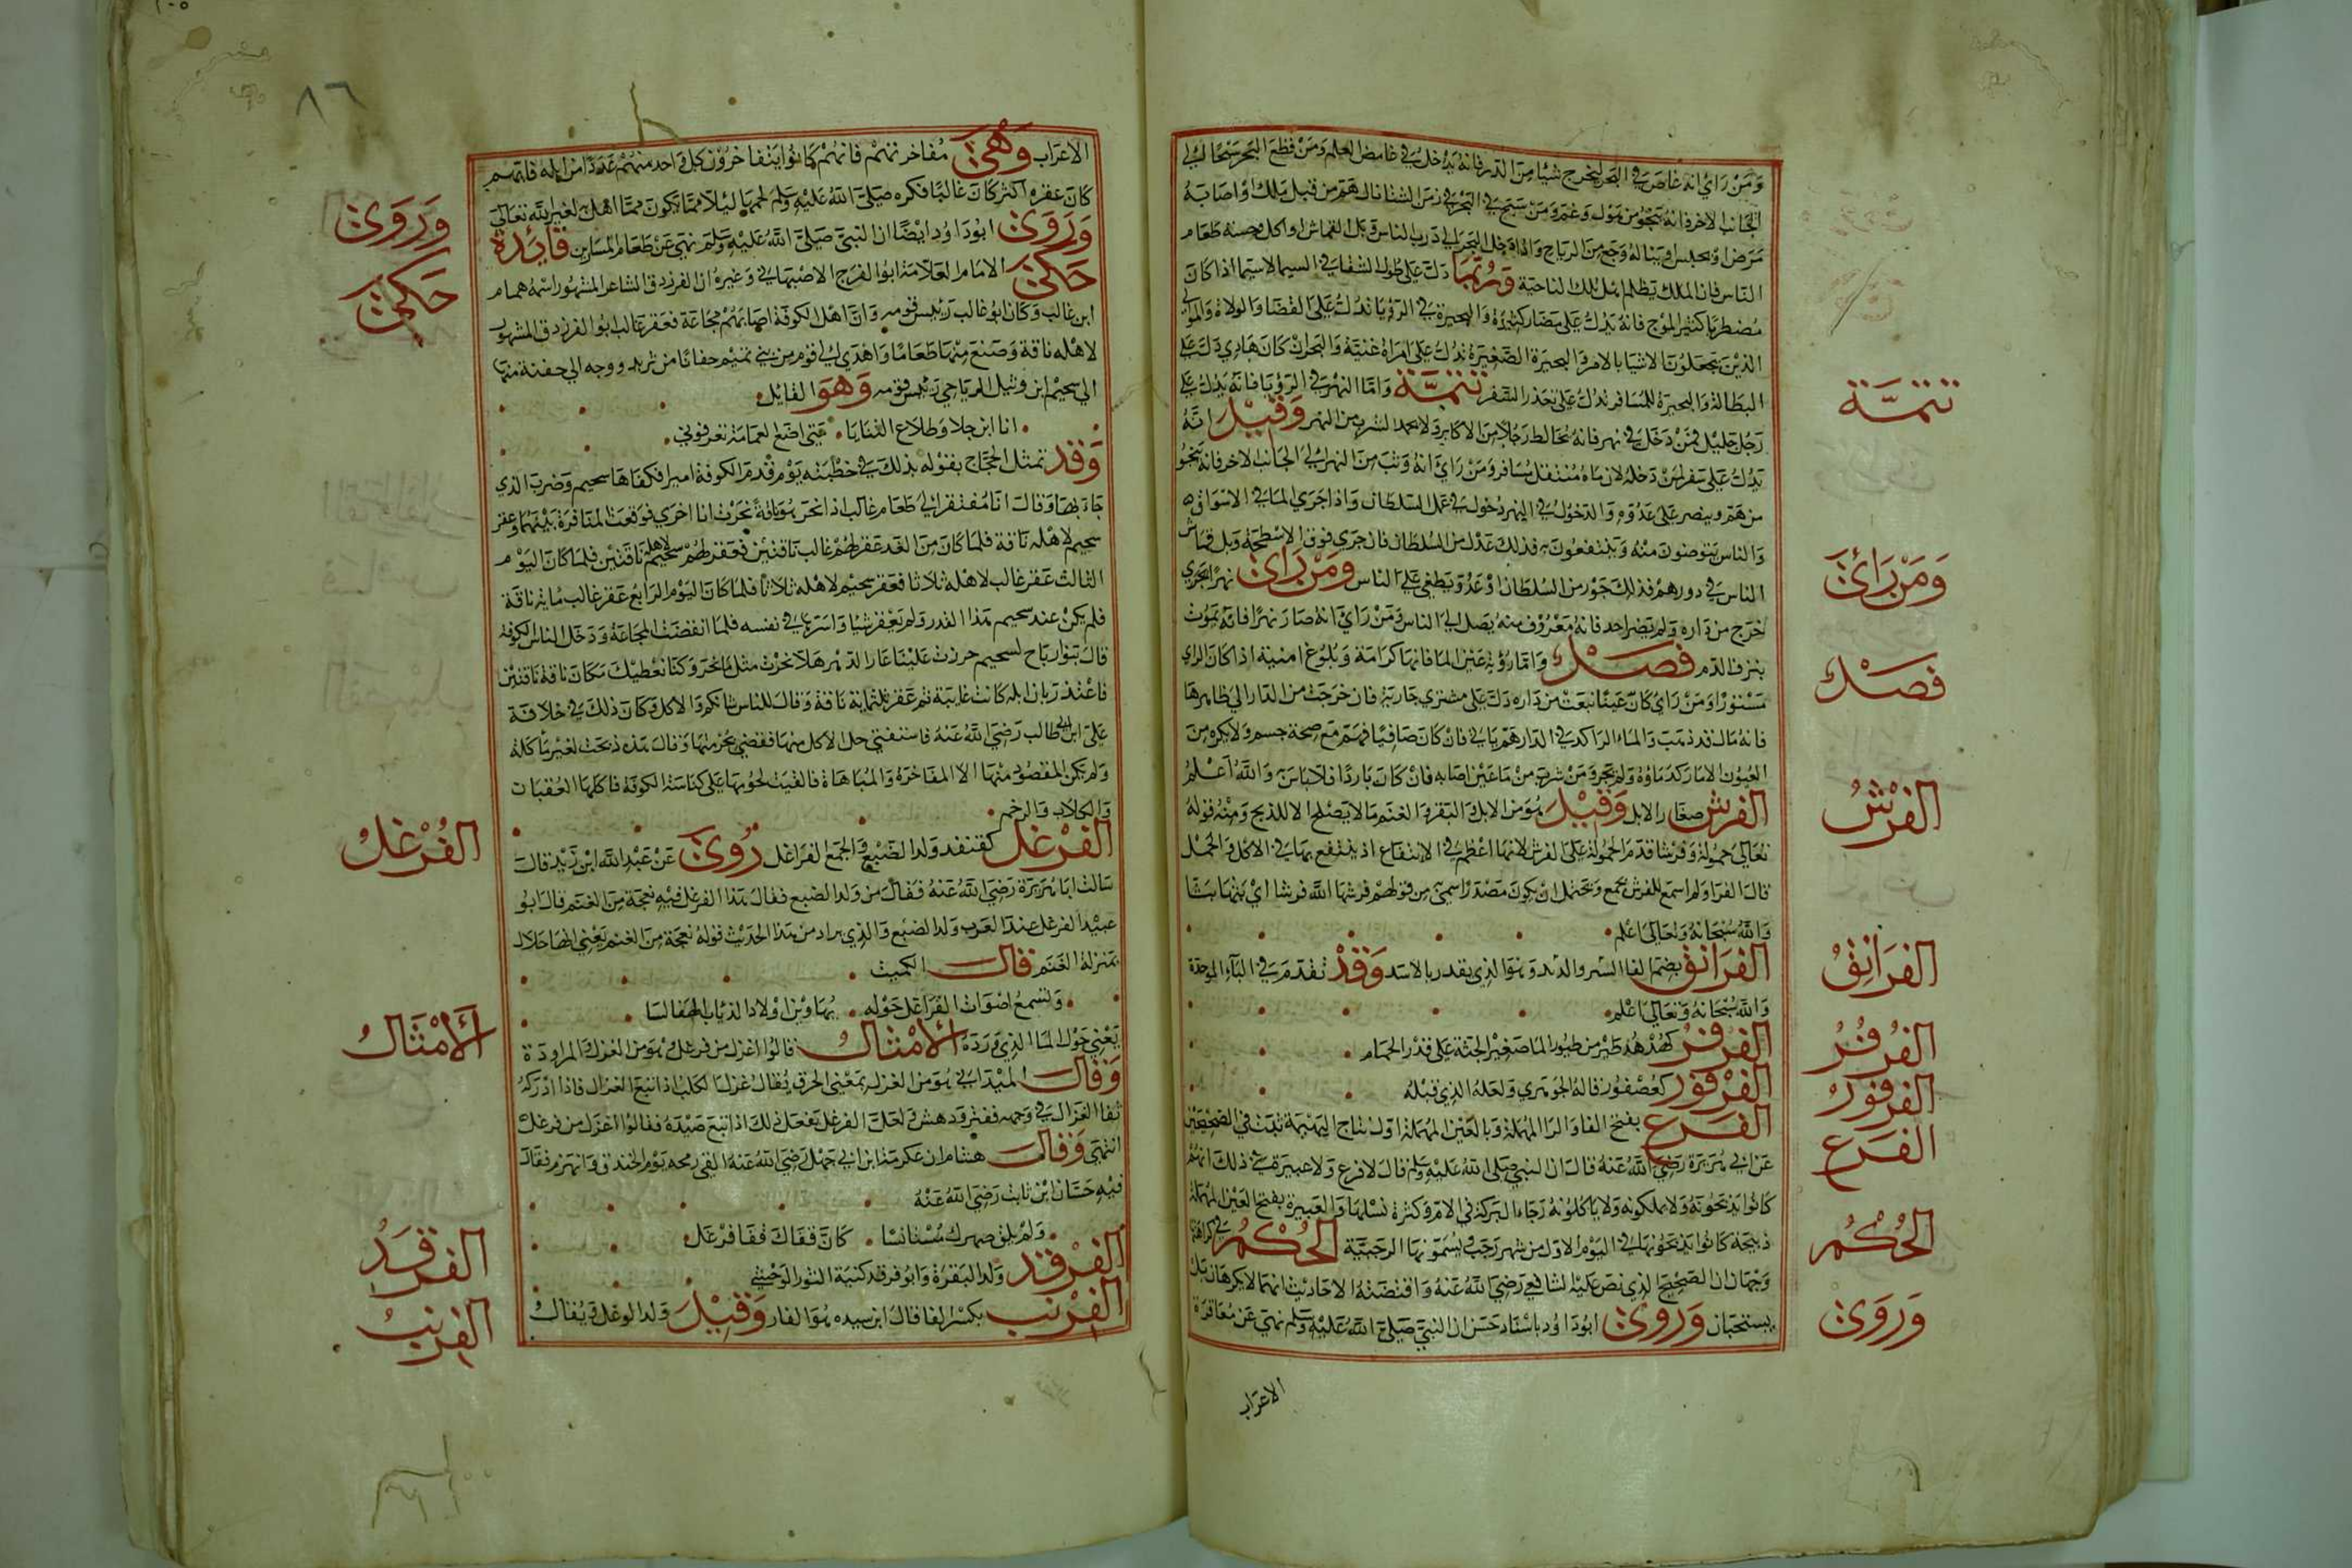 ومن رأى انه غاص في البحر ليخرج شيا من الدر فانه يدخل في غامض العلم ومن قطع البحر سبحا الى
الجانب الاخر فانه ينجو من هول وغم ومن سبح في البحر في زمن الشتا ناله هم من قبل ملك او اصابه
مرض او يحبس ويناله وجع من الرياح واذا دخل البحر الى درب الناس
الناس فان الملك يظلم اهل تلك الناحية وربما دل على طول الشفا في السيما لاسيما اذا كان
مضطربا كثير الموج فانه يدل على مضار كثيرة والبحيرة في الرؤيا تدل على القضا والولاة والموالي
الذين يجعلون الاشيا بالامر والبحيرة الصغيرة تدل على امراة غنية والبحر ان كان هادي دل على
البطالة والبحيرة للمسافر تدل على تعذر السفر تتمة واما النهر في الرؤيا فانه يدل على
رجل جليل فمن دخل في نهر فانه يخالط رجلا من الاكابر ولا يحمد الشرب من النهر وقيل انه
يدل على سفر لمن دخله لان ماه متنقل مسافر ومن راى انه وثب من النهر الى الجانب الاخر فانه ينجو
من هم وينصر على عدوه والدخول في النهر دخول في عمل السلطان واذا جرى الما في الاسواق
والناس يتوضون منه وينتفعون به فذلك عدل من السلطان فان جرى فوق الاسطحة وبل قماش
الناس في دورهم فذلك جور من السلطان او عدو يطغى على الناس ومن رأى نهرا يجري
خرج من داره ولم يضر احد فانه معروف منه يصل الى الناس ومن راى انه صار نهرا فانه يموت
بنزف الدم فصل واما رؤية عين الما فانها كرامة وبلوغ امنية اذا كان الراي
مستورا ومن راى كان عينا نبعت من داره دل على مشتري جارية فان خرجت من الدار الى ظاهرها
فانه مال قد ذهب والماء الراكد في الدار هم باق فان كان صافيا فهم مع صحة جسم ولا يكره من
العيون الا ما ركد ماؤه ولم يجر ومن شرب من ما عين اصابه فان كان باردا فلا باس به والله اعلم
الفرش صغار الابل وقيل هو من الابل والبقر والغنم ما لا يصلح الا للذبح ومنه قوله
تعالى حمولة وفرشا قدم الحمولة على الفرش لانها اعظم في الانتفاع اذ ينتفع بها في الاكل والحمل
قال الفرا ولم اسمع للفرش بجمع ويحتمل ان يكون مصدرا سمي به من قولهم فرشها الله فرشا اي بثها بثا
والله سبحانه وتعالى اعلم
الفرانق بضم الفا البر والاسد وهو الذي ينذر بالاسد وقد تقدم في الباء الموحدة
والله سبحانه وتعالى اعلم
الفرفر كهدهد طير من طيور الما صغير الجثة على قدر الحمام
الفرفور كعصفور قاله الجوهري ولعله الذي قبله
الفرع بفتح الفا والرا المهملة وبالعين المهملة اول نتاج البهيمة ثبت في الصحيحين
عن ابي هريرة رضي الله عنه قال ان النبي صلى الله عليه وسلم قال لا فرع ولا عتيرة
كانوا يذبحونه ولا يملكونه ولا ياكلونه رجاء البركة في الام وكثرة نسلها والعتيرة بفتح العين المهملة
ذبيحة كانوا يذبحونها في اليوم الاول من شهر رجب ويسمونها الرجبية الحكم في كراهتها
وجهان ان الصحيح الذي نص عليه الشافعي رضي الله عنه واقتضته الاحاديث انهما لا يكرهان بل
يستحبان وروى ابو داود باسناد حسن ان النبي صلى الله عليه وسلم نهى عن معاقرة
الاعراب
تتمة
ومن رأى
فصل
الفرش
الفرانق
الفرفر
الفرفور
الفرع
الحكم
وروى
٨٦
الاعراب وهي مفاخرتهم فانهم كانوا يتفاخرون كل واحد منهم عددا من ابله فايهم
كان عقره اكثر كان غالبا فكره صلى الله عليه وسلم لحمها ليلا تكون مما اهل به لغير الله تعالى
وروى ابو داود ايضا ان النبي صلى الله عليه وسلم نهى عن طعام المتبارين فائدة
حكى الامام العلامة ابو الفرج الاصبهاني وغيره ان الفرزدق الشاعر المشهور اسمه همام
ابن غالب وكان ابو غالب رئيس قومه وان اهل الكوفة اصابتهم مجاعة فعقر غالب ابو الفرزدق المشهور
لاهله ناقة وصنع منها طعاما واهدى الى قوم من بني تميم جفانا من ثريد ووجه الى جفنة منها
الى سحيم ابن وثيل الرياحي رئيس قومه وهو القايل
انا ابن جلا وطلاع الثنايا متى اضع العمامة تعرفوني
وقد تمثل الحجاج بقوله بذلك في خطبته يوم قدم الكوفة اميرا فكفاها سحيم وضرب الذي
جاء بها وقال انا مفتقر الى طعام غالب اذا نحر هو ناقة نحرت انا اخرى فوقعت المنافرة بينهما وعقر
سحيم لاهله ناقة فلما كان من الغد عقر لهم غالب ناقتين فعقر لهم سحيم لاهله ناقتين فلما كان اليوم
الثالث عقر غالب لاهله ثلاثا فعقر سحيم لاهله ثلاثا فلما كان اليوم الرابع عقر غالب ماية ناقة
فلم يكن عند سحيم هذا القدر ولم يعقر شيا واسرها في نفسه فلما انقضت المجاعة ودخل الناس الكوفة
قال بنو رياح لسحيم جررت علينا عار الدهر هلا نحرت مثل ما نحر وكنا نعطيك مكان ناقة ناقتين
فاعتذر بان ابله كانت غايبة ثم عقر ثلثماية ناقة وقال للناس شانكم والاكل وكان ذلك في خلافة
علي ابن ابي طالب رضي الله عنه فاستفتي حل الاكل منها فقضى بحرمتها وقال هذه ذبحت لغير ماكلة
ولم يكن المقصود منها الا المفاخرة والمباهاة فالقيت لحومها على كناسة الكوفة فاكلها العقبان
والكلاب والرخم
الفرغل كقنفد ولد الضبع والجمع الفراغل روى عن عبد الله ابن زيد قال
سالت ابا هريرة رضي الله عنه فقال من ولد الضبع فقال هذا الفرغل فيه نعجة من الغنم قال ابو
عبيد الفرغل عند العرب ولد الضبع والذي يراد من هذا الحديث قوله نعجة من الغنم يعني انها حلال
بمنزلة الغنم قال الكميت
وتسمع اصوات الفراغل حوله يهاوين اولاد الذياب الهقالسا
يعني حول الما الذي ورده الامثال قالوا اغزل من فرعل هو من الغزل المراودة
وقال الميداني هو من الغزل بمعنى الخرق يقال غزل الكلب اذا تبع الغزال فاذا ادركه
ثغا الغزال في وجهه ففتر ودهش ولعل الفرغل يفعل ذلك اذا تبع صيده فقالوا اغزل من فرغل
انتهى وقال هشام ان عكرمة ابن ابي جهل رضي الله عنه القى رمحه يوم الخندق وانهزم فقال
فيه حسان ابن ثابت رضي الله عنه
ولم يلق ظهرك مستانسا كان قفاك قفا فرغل
الفرقد ولد البقرة وابو فرقد كنية الثور الوحشي
الفرنب بكسر الفا قال ابن سيده هو الفار وقيل ولد الوغل ويقال
وروى
حكى
الفرغل
الامثال
الفرقد
الفرنب